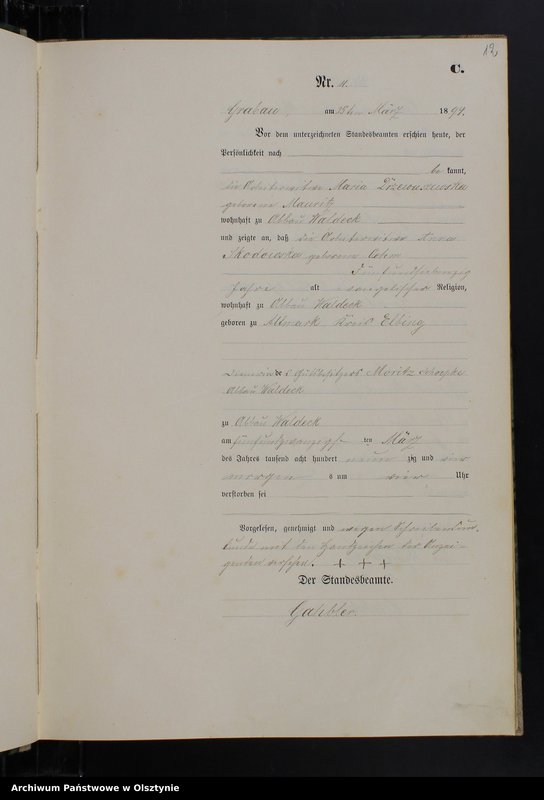 12
C.
Nr. 11.
Grabau, am 25ten März 1894.
Vor dem unterzeichneten Standesbeamten erschien heute, der
Persönlichkeit nach
be kannt,
die Arbeiterwitwe Maria
geborene Mauritz
wohnhaft zu Abbau Waldeck
und zeigte an, daß die Arbeiterwitwe Anna
geborene
Fünfundsiebenzig
Jahre alt evangelischer Religion,
wohnhaft zu Abbau Waldeck
geboren zu Altmark Kreis Elbing
de s Gutsbesitzers Moritz
Abbau Waldeck
zu Abbau Waldeck
am fünfundzwanzigs ten März
des Jahres tausend acht hundert neun zig und vier
morgen s um vier Uhr
verstorben sei
Vorgelesen, genehmigt und wegen Schreibensun-
kunde mit den Handzeichen der Anzei-
genden versehen. + + +
Der Standesbeamte.
Archiwum Państwowe w Olsztynie